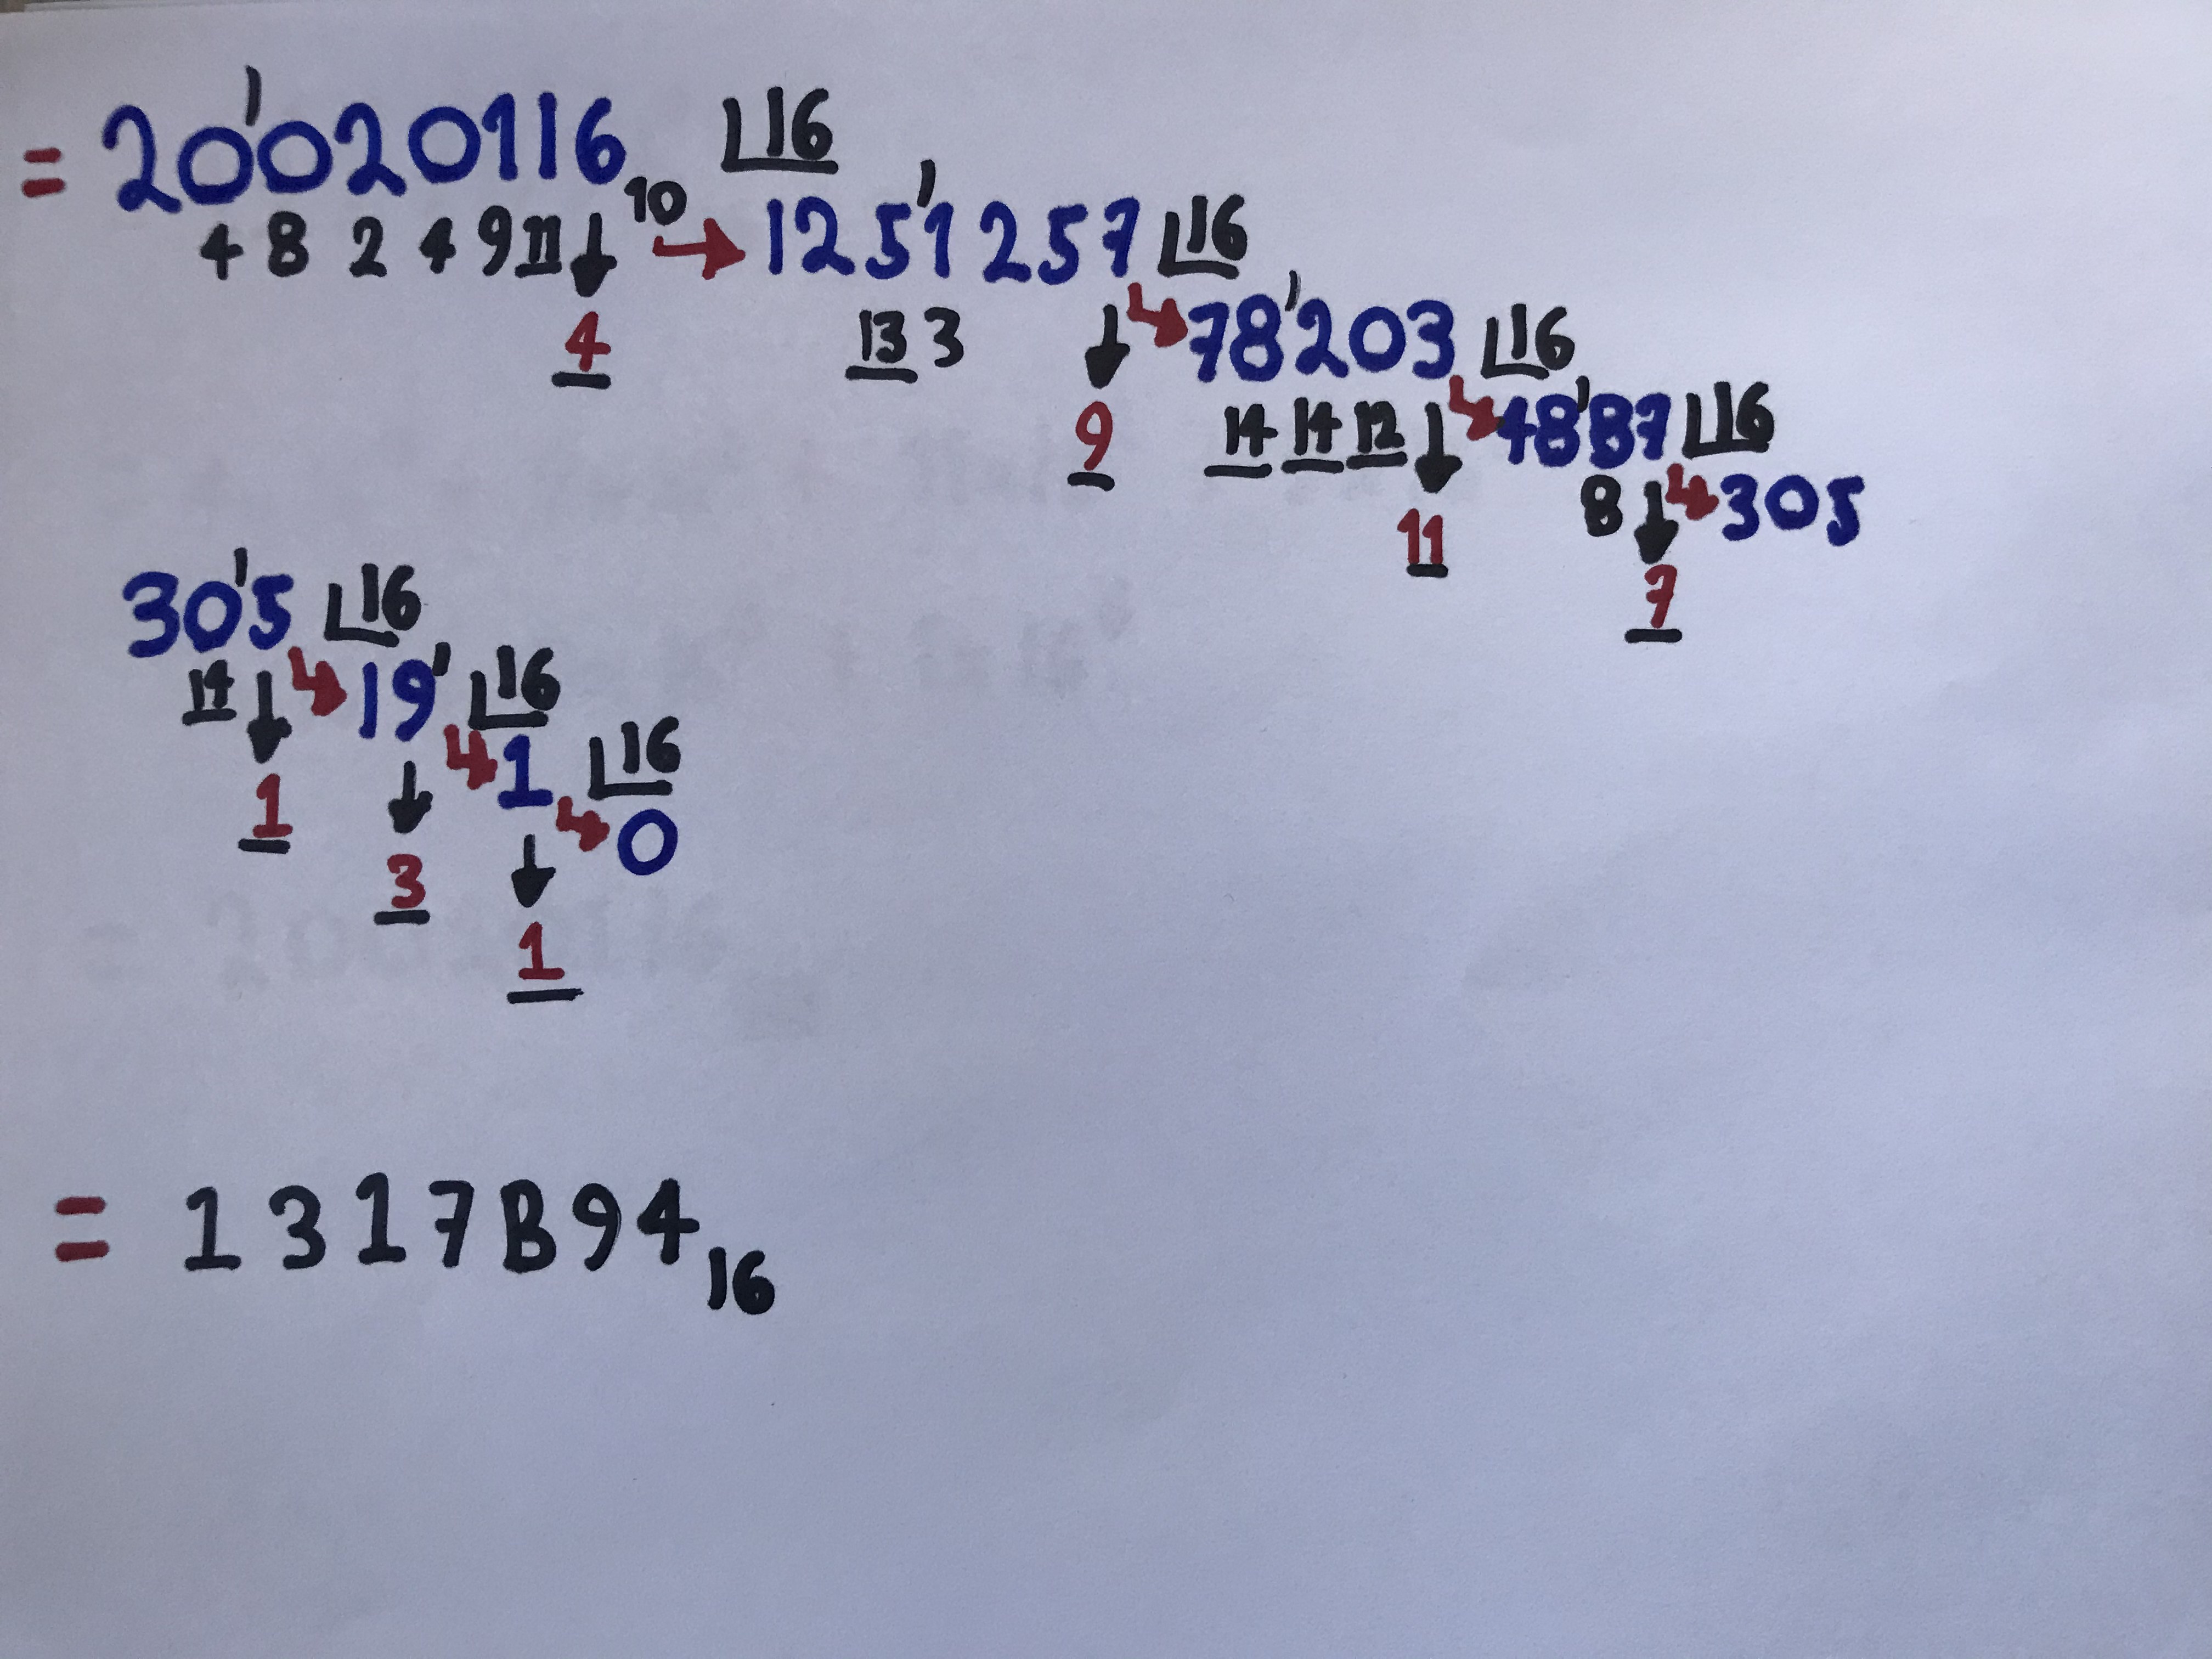 = 20'020116₁₀ ⌊16
4 8 2 4 9 11 ↓ → 125'1257 ⌊16
4 13 3 ↓ ↳ 78'203 ⌊16
9 14 14 12 ↓ ↳ 48'87 ⌊16
11 8 ↓ ↳ 305
7
30'5 ⌊16
14 ↓ ↳ 19' ⌊16
1 ↓ ↳ 1 ⌊16
3 ↓ ↳ 0
1
= 1317B94₁₆